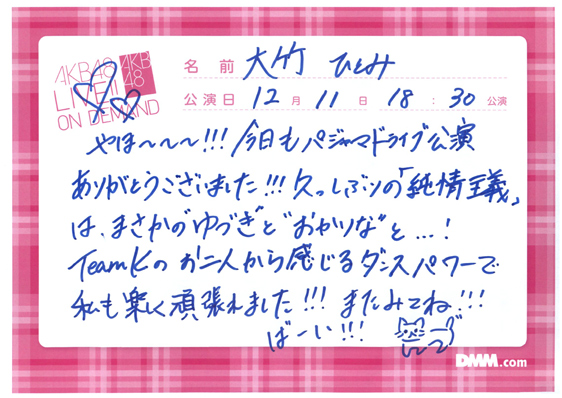 AKB48
LIVE!!
ON DEMAND
AKB
48
名前 大竹 ひとみ
公演日 12月 11日 18:30 公演
やほ〜〜〜!!! 今日もパジャマドライブ公演
ありがとうございました!!! 久っしぶりの「純情主義」
は、まさかの"ゆづき"と"おかりな"と…!
TeamKのお二人から感じるダンスパワーで
私も楽しく頑張れました!!! またみてね!!!
ばーい!!!
DMM.com